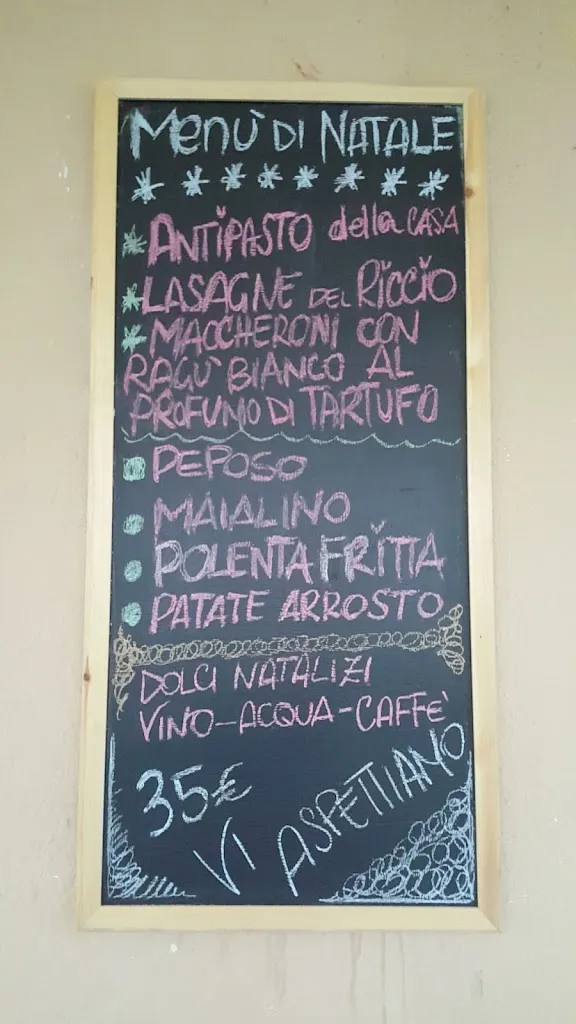 Menù DI NATALE
ANTIPASTO della CASA
LASAGNE DEL RICCIO
MACCHERONI CON
RAGU' BIANCO AL
PROFUMO DI TARTUFO
PEPOSO
MAIALINO
POLENTA FRITTA
PATATE ARROSTO
DOLCI NATALIZI
VINO-ACQUA-CAFFE'
35€
VI ASPETTIAMO